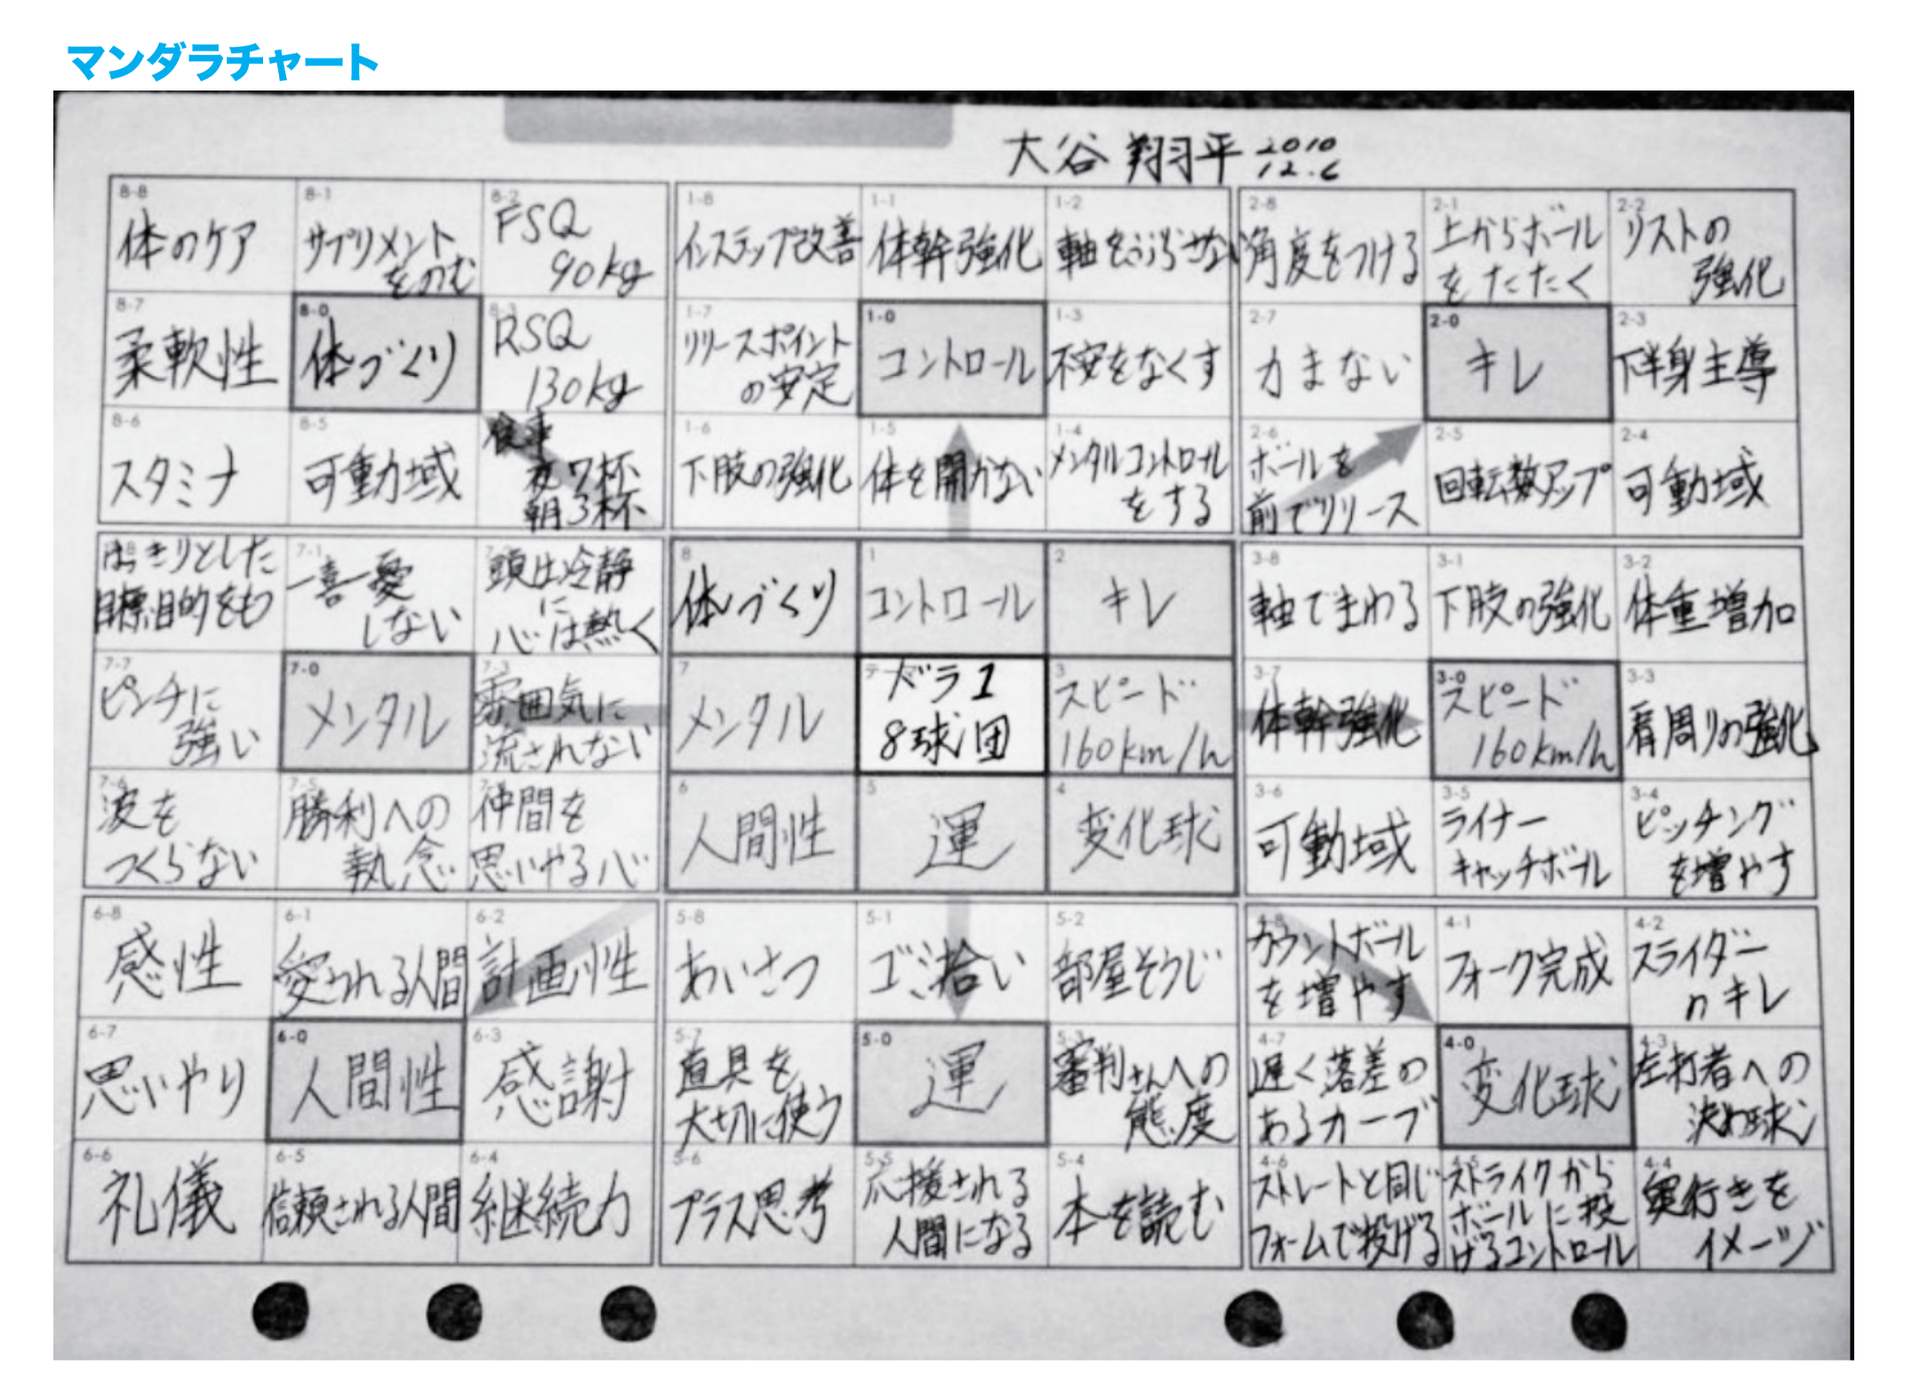 マンダラチャート
大谷 翔平 2010
12.6
8-8
体のケア
8-1
サプリメント
をのむ
8-2
FSQ
90kg
8-7
柔軟性
8-0
体づくり
8-3
RSQ
130kg
8-6
スタミナ
8-5
可動域
食事
夜7杯
朝3杯
1-8
インステップ改善
1-1
体幹強化
1-2
軸をぶらさない
1-7
リリースポイント
の安定
1-0
コントロール
1-3
不安をなくす
1-6
下肢の強化
1-5
体を開かない
1-4
メンタルコントロール
をする
2-8
角度をつける
2-1
上からボール
をたたく
2-2
リストの
強化
2-7
力まない
2-0
キレ
2-3
下半身主導
2-6
ボールを
前でリリース
2-5
回転数アップ
2-4
可動域
はっきりとした
目標、目的をもつ
7-1
一喜一憂
しない
頭は冷静
に
心は熱く
7-7
ピンチに
強い
7-0
メンタル
7-3
雰囲気に
流されない
7-6
波を
つくらない
7-5
勝利への
執念
仲間を
思いやる心
8
体づくり
1
コントロール
2
キレ
7
メンタル
ドラ1
8球団
3
スピード
160km/h
6
人間性
5
運
4
変化球
3-8
軸でまわる
3-1
下肢の強化
3-2
体重増加
3-7
体幹強化
3-0
スピード
160km/h
3-3
肩周りの強化
3-6
可動域
3-5
ライナー
キャッチボール
3-4
ピッチング
を増やす
6-8
感性
6-1
愛される人間
6-2
計画性
6-7
思いやり
6-0
人間性
6-3
感謝
6-6
礼儀
6-5
信頼される人間
6-4
継続力
5-8
あいさつ
5-1
ゴミ拾い
5-2
部屋そうじ
5-7
道具を
大切に使う
5-0
運
5-3
審判さんへの
態度
5-6
プラス思考
5-5
応援される
人間になる
5-4
本を読む
4-8
カウントボール
を増やす
4-1
フォーク完成
4-2
スライダー
のキレ
4-7
遅く落差の
あるカーブ
4-0
変化球
4-3
左打者への
決め球
4-6
ストレートと同じ
フォームで投げる
4-5
ストライクから
ボールに投
げるコントロール
4-4
奥行きを
イメージ